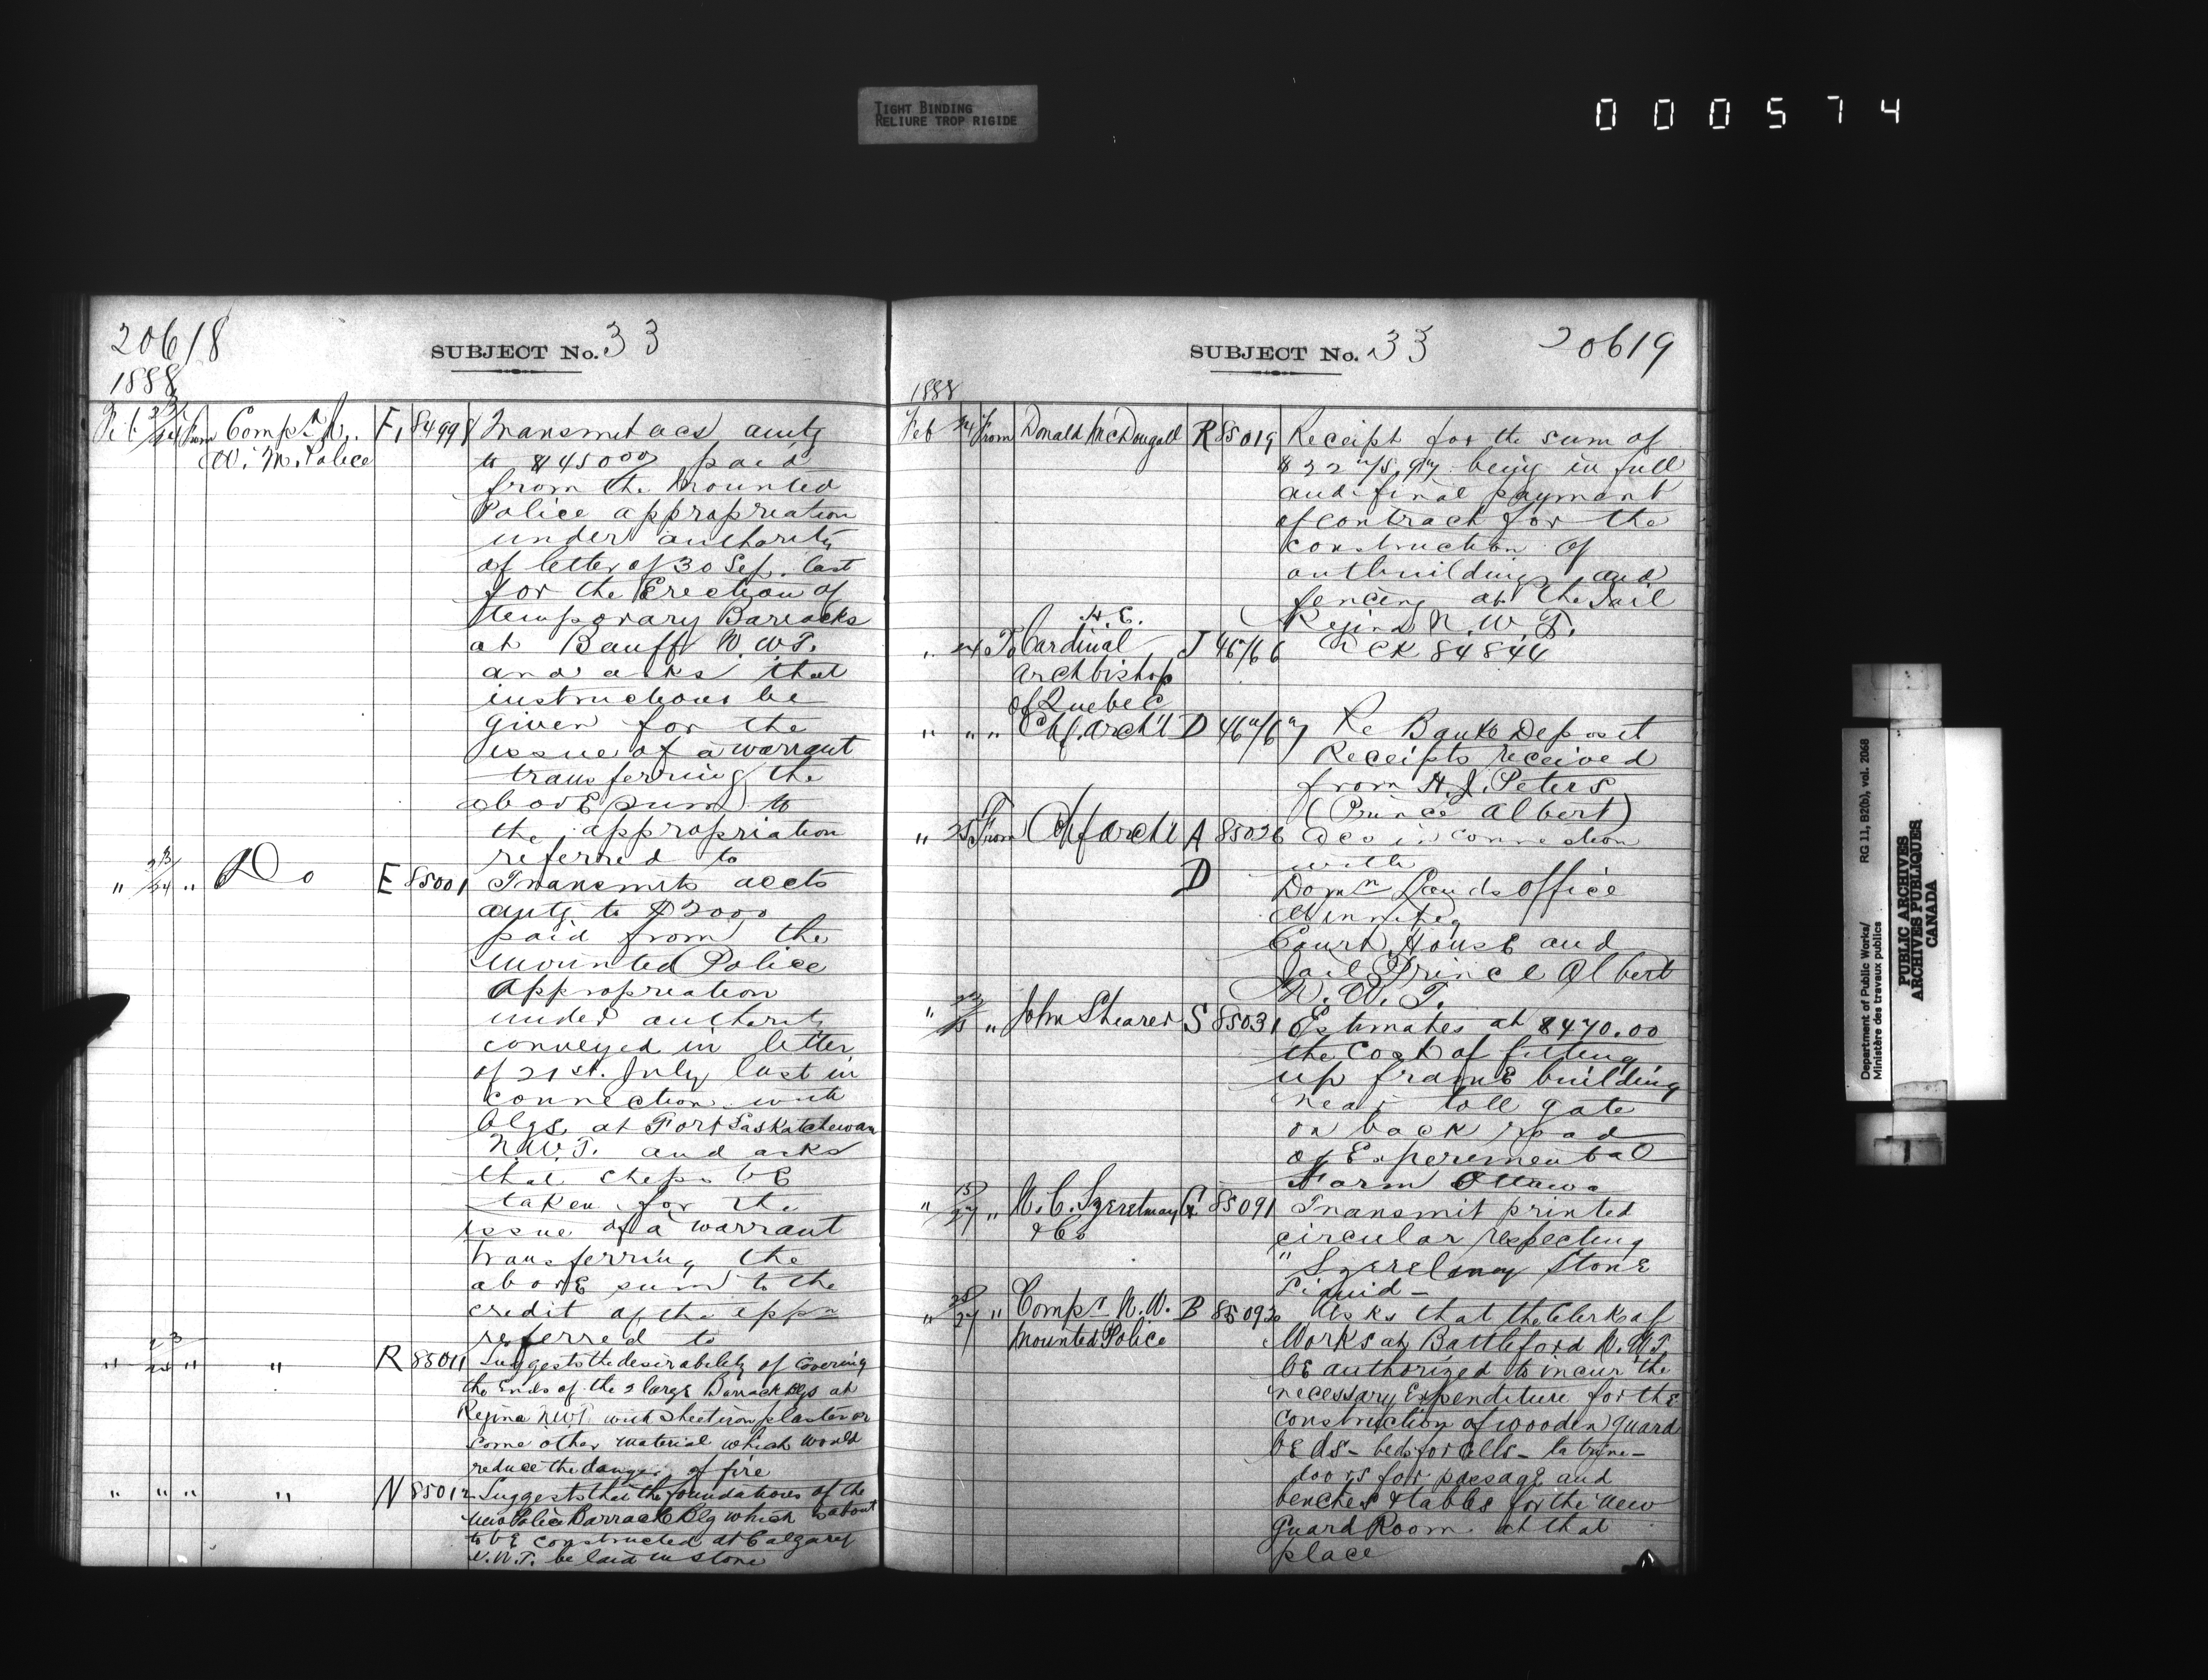 TIGHT BINDING
RELIURE TROP RIGIDE
000574
20618
SUBJECT No. 33
1888
Feb 23/24 From Compt N. F. 84998 Transmit accs amtg
W. M. Police to $45000 paid
from the Mounted
Police appropriation
under authority
of letter of 30 Sep. last
for the Erection of
temporary Barracks
at Banff N.W.T.
and asks that
instructions be
given for the
issue of a warrant
transferring the
above sum to
the appropriation
referred to
" 23/24 " Do E 85001 Transmits accts
amtg to $2000
paid from the
Mounted Police
Appropriation
under authority
conveyed in letter
of 21st. July last in
connection with
blgs. at Fort Saskatchewan
N.W.T. and asks
that steps be
taken for the
issue of a warrant
transferring the
above sum to the
credit of the appn
referred to
" 23/25 " " R 85011 Suggests the desirability of covering
the Ends of the 2 large Barrack Blgs at
Regina N.W.T. with sheet iron plaster or
some other material which would
reduce the danger of fire
" " " " N 85012 Suggests that the foundations of the
new Police Barrack Blg which is about
to be constructed at Calgary
N.W.T. be laid in stone
SUBJECT No. 33
20619
1888
Feb 24 From Donald McDougall R 85019 Receipt for the sum of
being in full
and final payment
of contract for the
construction of
outbuildings and
fencing at the Jail
Regina N.W.T.
" 24 To H. E. Cardinal J 46766 Ack 84844
Archbishop
of Quebec
" " " Chf. Archt D 46767 Re Bank Deposit
Receipts received
from H. J. Peters
(Prince Albert)
" 25 From Chf Archt A 85026 Accs in connection
D with
Domn Lands Office
Winnipeg
Court House and
Jail Prince Albert
N. W. T.
" " John Shearer S 85031 Estimates at $470.00
the cost of fitting
up frame building
near toll gate
on back road
of Experimental
Farm Ottawa
" 15/27 " N. C. Szerelmey G. 85091 Transmit printed
& Co circular respecting
" Szerelmey Stone
Liquid -
" 25/27 " Compt N. W. B 85092 Asks that the Clerk of
Mounted Police Works at Battleford N.W.T.
be authorized to incur the
necessary Expenditure for the
construction of wooden guard
beds - beds for cells - latrine -
doors for passage and
benches & tables for the new
Guard Room at that
place
Department of Public Works/
Ministère des travaux publics
RG 11, B2(b), vol. 2068
PUBLIC ARCHIVES
ARCHIVES PUBLIQUES
CANADA